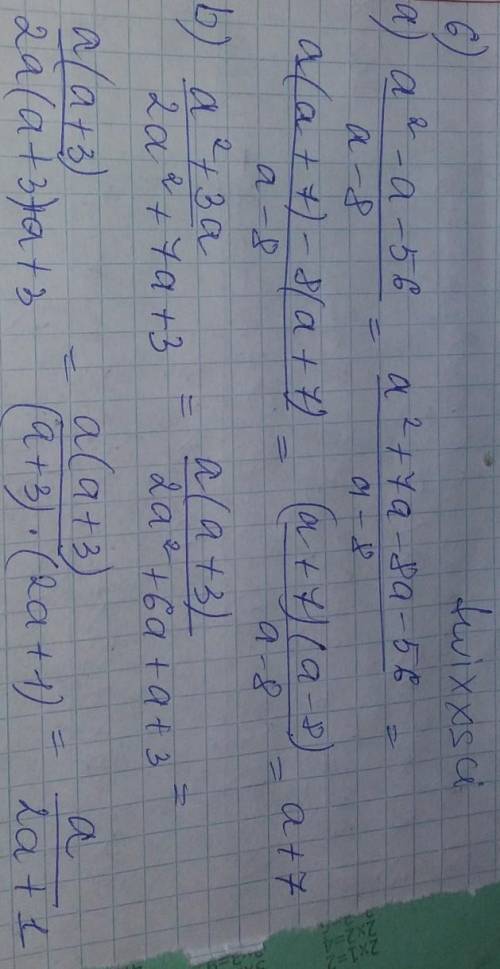 6)
twixxsa
a) a² - a - 56 / a - 8 = a² + 7a - 8a - 56 / a - 8 =
a(a + 7) - 8(a + 7) / a - 8 = (a + 7)(a - 8) / a - 8 = a + 7
b) a² + 3a / 2a² + 7a + 3 = a(a + 3) / 2a² + 6a + a + 3 =
a(a + 3) / 2a(a + 3)+a + 3 = a(a + 3) / (a + 3) · (2a + 1) = a / 2a + 1
2×1=2
2×2=4